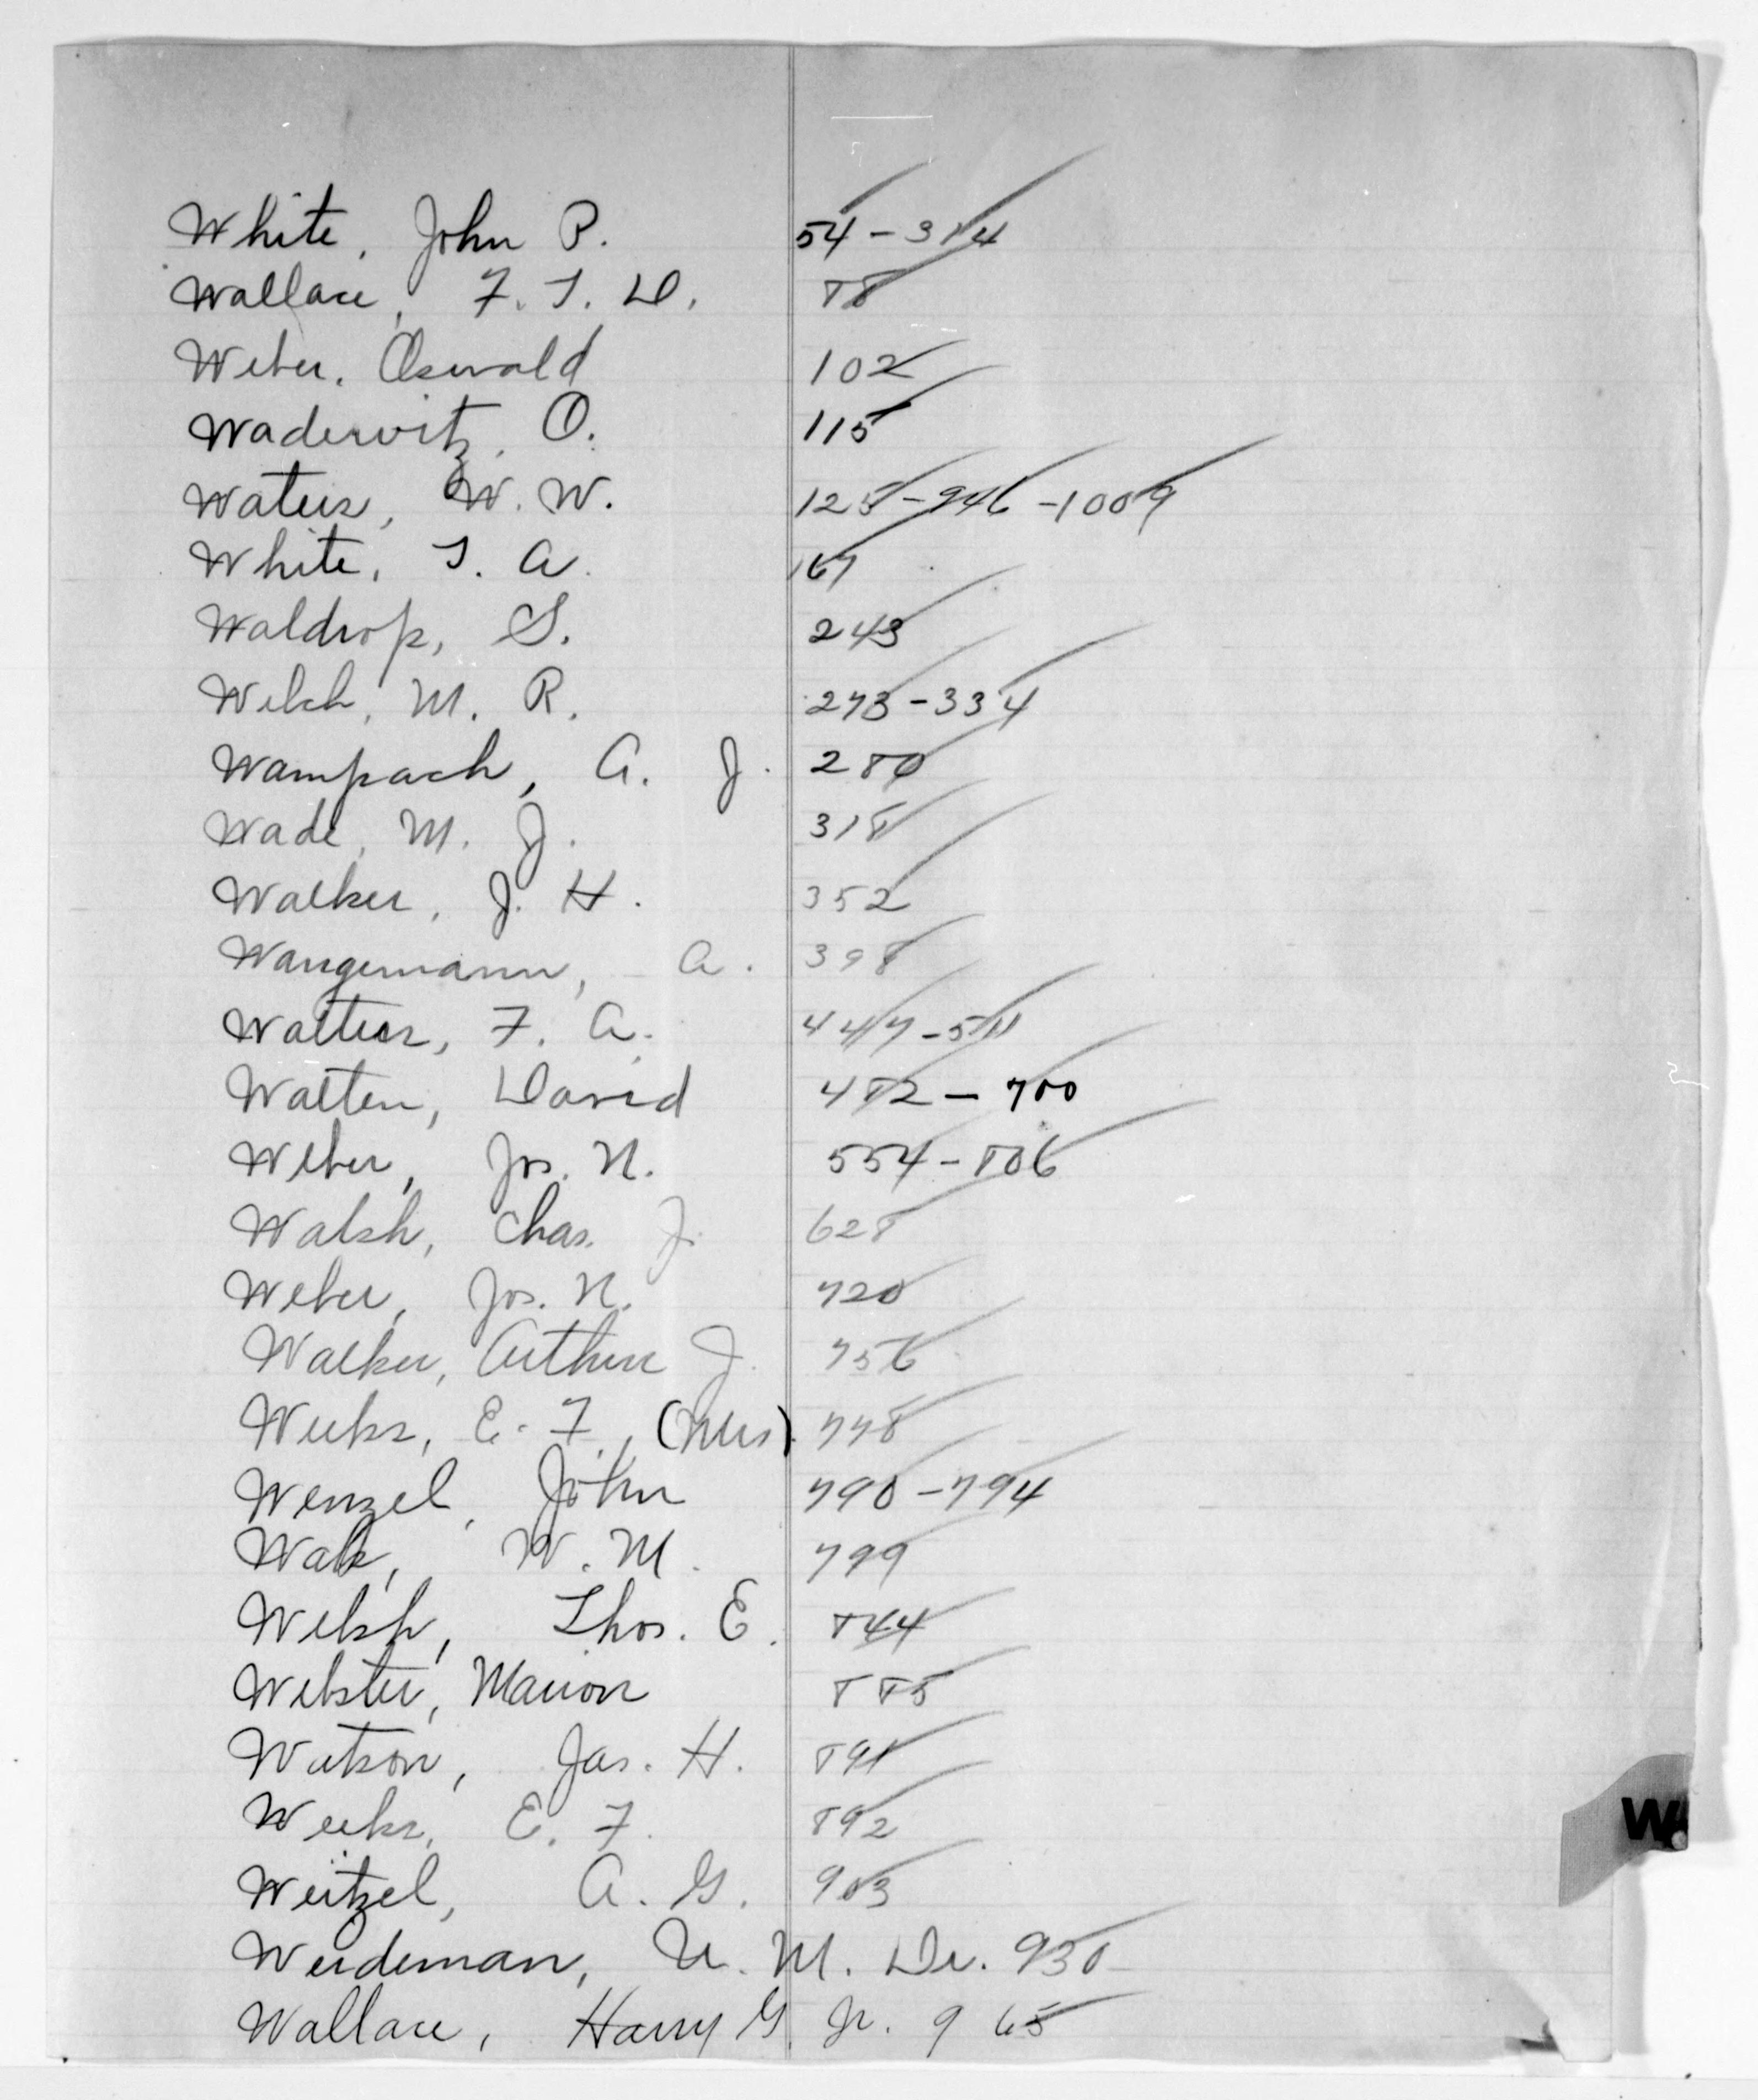 White, John P. 54 - 314
Wallace, F. T. D. 88
Weber, Oswald 102
Waderwitz, O. 115
Waters, W. W. 125 - 946 - 1009
White, T. A. 167
Waldrop, S. 243
Welch, M. R. 273 - 334
Wampach, A. J. 280
Wade, M. J. 318
Walker, J. H. 352
Wangemann, A. 398
Walters, F. A. 447 - 511
Walten, David 482 - 700
Weber, Jos. N. 554 - 806
Walsh, Chas. J. 628
Weber, Jos. N. 720
Walker, Arthur J. 756
Weeks, E. F., (Mrs). 778
Wenzel, John 790 - 794
W. M. 799
Welsh, Thos. E. 844
Webster, Marion 885
Watson, Jas. H. 891
Weeks, E. F. 892
Weitzel, A. G. 903
Weideman, U. M. Dr. 930
Wallace, Harry G. Jr. 965
W